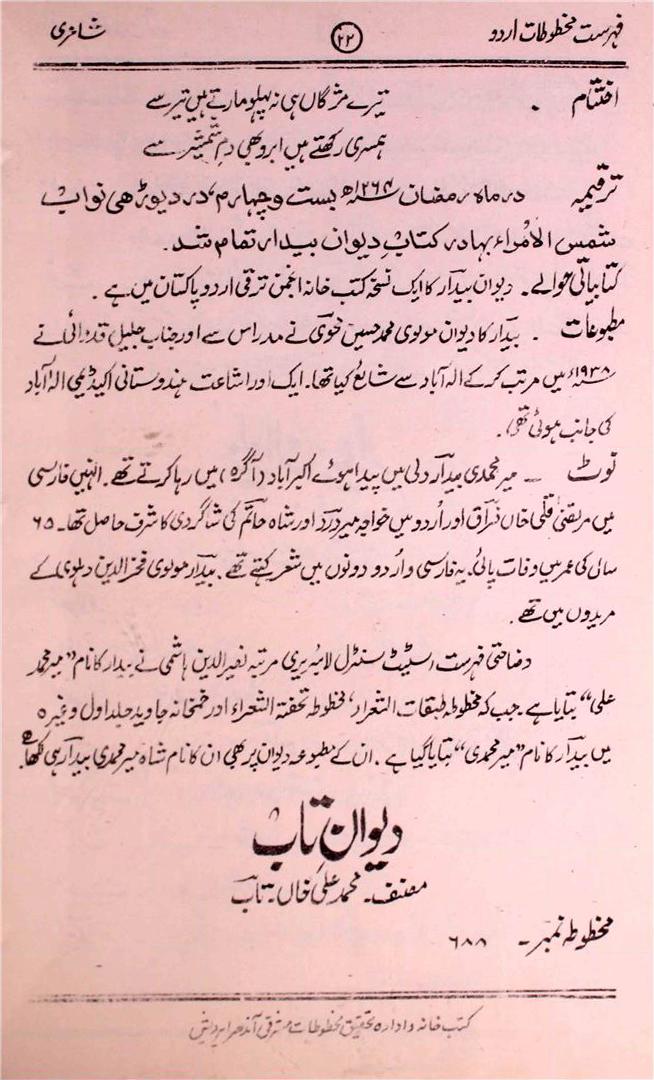 فہرست مخطوطات اردو ۲۲ شاعری
اختتام ۔ تیرے مژگاں ہی نہ پہلو مارتے ہیں تیر سے
ہمسری رکھتے ہیں ابرو بھی دمِ شمشیر سے
ترقیمہ درماہ رمضان ۱۲۶۴ھ بست و چہارم، در دیوڑھی نواب
شمس الامراء بہادر کتاب دیوان بیدار تمام شد۔
کتابیاتی حوالے۔ دیوان بیدار کا ایک نسخہ کتب خانہ انجمن ترقی اردو پاکستان میں ہے ۔
مطبوعات ۔ بیدار کا دیوان مولوی محمد حسین محوی نے مدراس سے اور جناب جلیل قدوائی نے
۱۹۳۸ء میں مرتب کر کے الہ آباد سے شایع کیا تھا۔ ایک اور اشاعت ہندوستانی اکیڈیمی الہ آباد
کی جانب ہوئی تھی۔
نوٹ ۔ میر محمدی بیدار دلی میں پیدا ہوئے اکبرآباد (آگرہ) میں رہا کرتے تھے۔ انہیں فارسی
میں مرتضیٰ قلی خاں فراق اور اُردو میں خواجہ میر درد اور شاہ حاتم کی شاگردی کا شرف حاصل تھا۔ ۶۵
سال کی عمر میں وفات پائی۔ یہ فارسی و اُردو دونوں میں شعر کہتے تھے۔ بیدار مولوی فخر الدین دہلوی کے
مریدوں میں تھے۔
وضاحتی فہرست اسٹیٹ سنٹرل لائبریری مرتبہ نصیر الدین ہاشمی نے بیدار کا نام ”میر محمد
علی“ بتایا ہے جب کہ مخطوطہ طبقات الشعراء، مخطوطہ تحفتہ الشعراء اور خمخانہ جاوید جلد اول وغیرہ
میں بیدار کا نام ”میر محمدی“ بتایا گیا ہے ۔ ان کے مطبوعہ دیوان پر بھی ان کا نام شاہ میر محمدی بیدار ہی لکھا ہے
دیوان تاب
مصنف۔ محمد علی خاں۔ تاب
مخطوطہ نمبر۔ ۶۸۸
کتب خانہ و ادارہ تحقیق مخطوطات مشرقی آندھرا پردیش